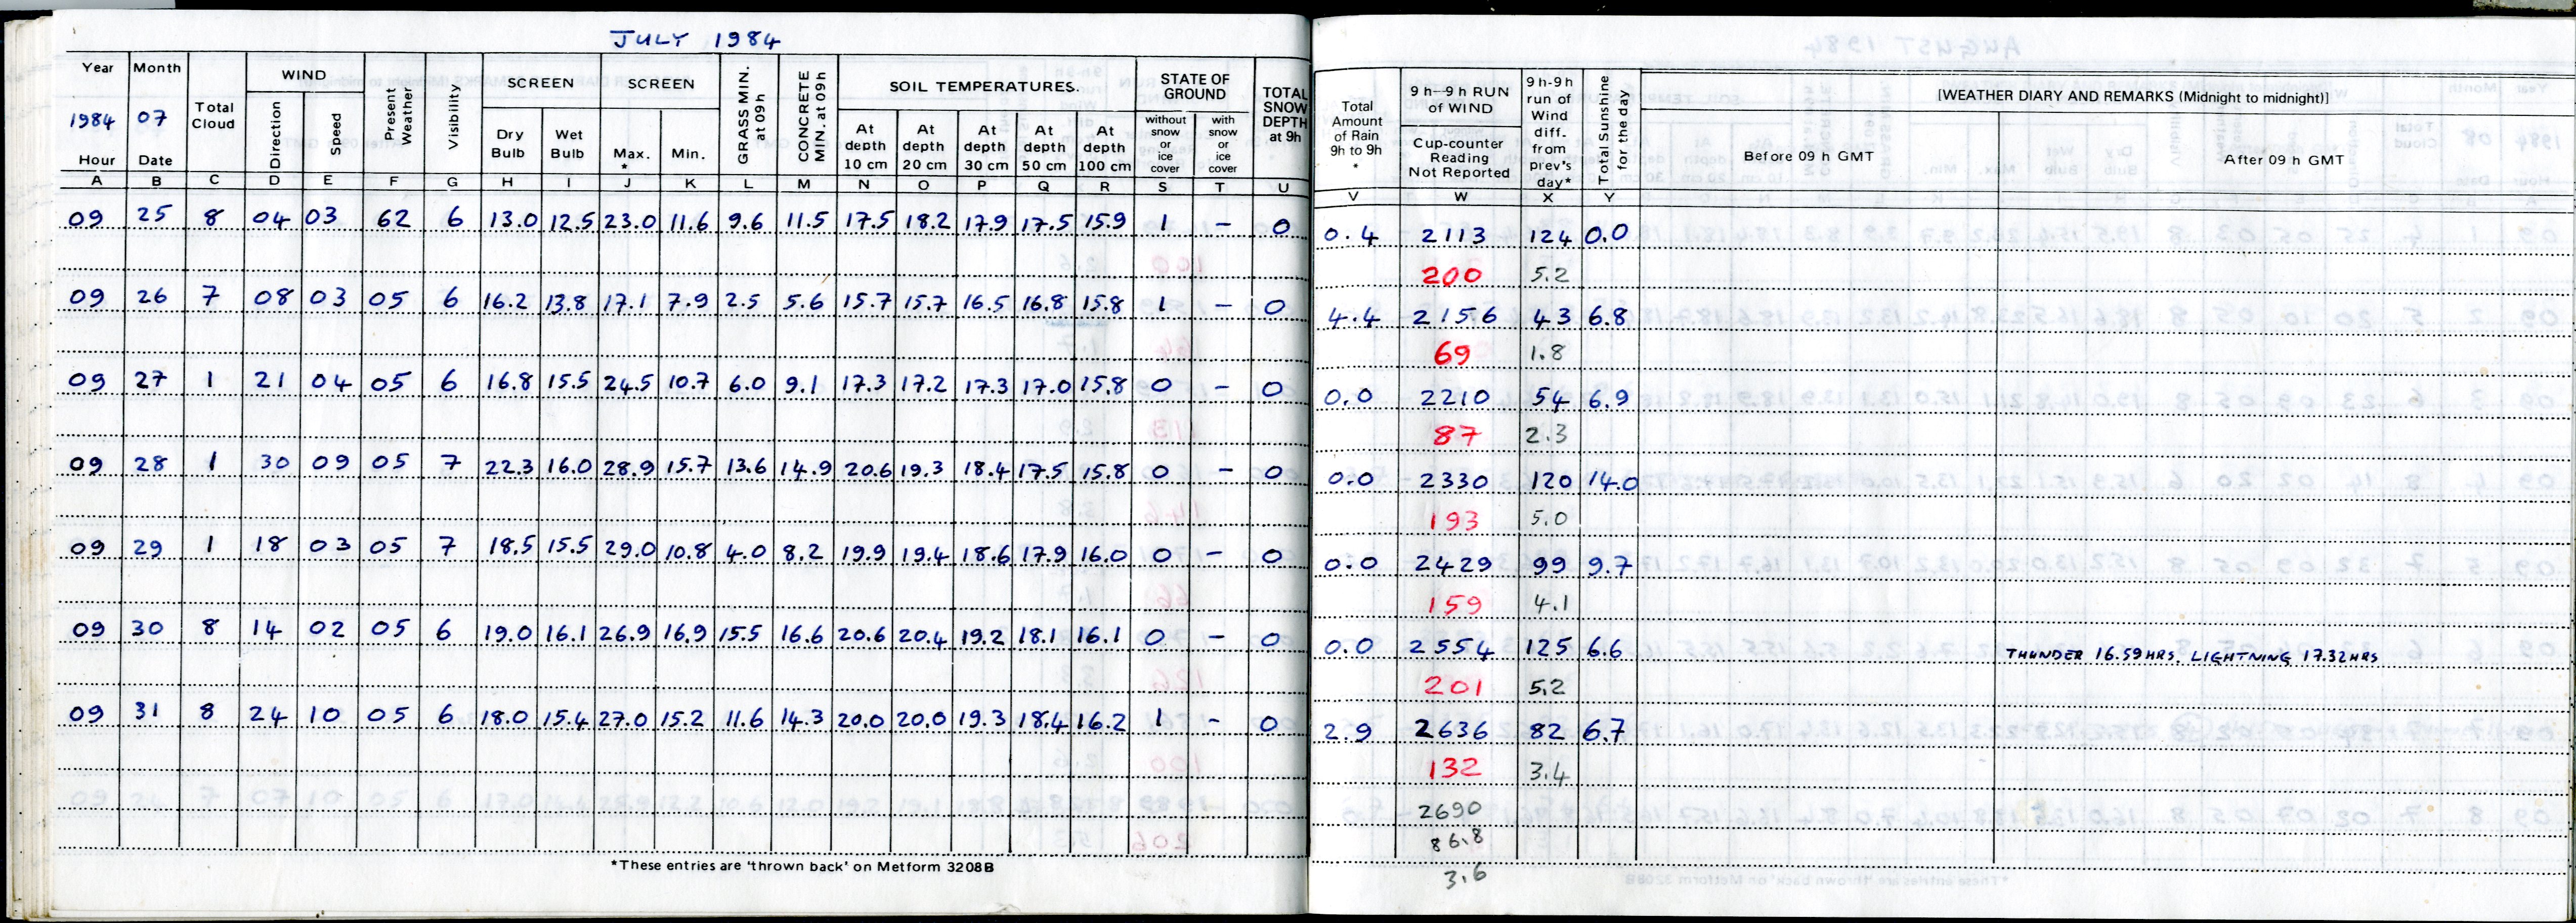 JULY 1984
Year Month Total Cloud WIND Present Weather Visibility SCREEN SCREEN GRASS MIN. at 09h CONCRETE MIN. at 09h SOIL TEMPERATURES. STATE OF GROUND TOTAL SNOW DEPTH at 9h
1984 07
Direction Speed Dry Bulb Wet Bulb Max. * Min. At depth 10 cm At depth 20 cm At depth 30 cm At depth 50 cm At depth 100 cm without snow or ice cover with snow or ice cover
Hour Date
A B C D E F G H I J K L M N O P Q R S T U
09 25 8 04 03 62 6 13.0 12.5 23.0 11.6 9.6 11.5 17.5 18.2 17.9 17.5 15.9 1 – 0
09 26 7 08 03 05 6 16.2 13.8 17.1 7.9 2.5 5.6 15.7 15.7 16.5 16.8 15.8 1 – 0
09 27 1 21 04 05 6 16.8 15.5 24.5 10.7 6.0 9.1 17.3 17.2 17.3 17.0 15.8 0 – 0
09 28 1 30 09 05 7 22.3 16.0 28.9 15.7 13.6 14.9 20.6 19.3 18.4 17.5 15.8 0 – 0
09 29 1 18 03 05 7 18.5 15.5 29.0 10.8 4.0 8.2 19.9 19.4 18.6 17.9 16.0 0 – 0
09 30 8 14 02 05 6 19.0 16.1 26.9 16.9 15.5 16.6 20.6 20.4 19.2 18.1 16.1 0 – 0
09 31 8 24 10 05 6 18.0 15.4 27.0 15.2 11.6 14.3 20.0 20.0 19.3 18.4 16.2 1 – 0
*These entries are 'thrown back' on Metform 3208B
Total Amount of Rain 9h to 9h * 9h–9h RUN of WIND Cup-counter Reading Not Reported 9h-9h run of Wind diff. from prev's day* Total Sunshine for the day [WEATHER DIARY AND REMARKS (Midnight to midnight)]
Before 09 h GMT After 09 h GMT
V W X Y
0.4 2113 124 0.0
200 5.2
4.4 2156 43 6.8
69 1.8
0.0 2210 54 6.9
87 2.3
0.0 2330 120 14.0
193 5.0
0.0 2429 99 9.7
159 4.1
0.0 2554 125 6.6 THUNDER 16.59HRS. LIGHTNING 17.32HRS
201 5.2
2.9 2636 82 6.7
132 3.4
2690
86.8
3.6